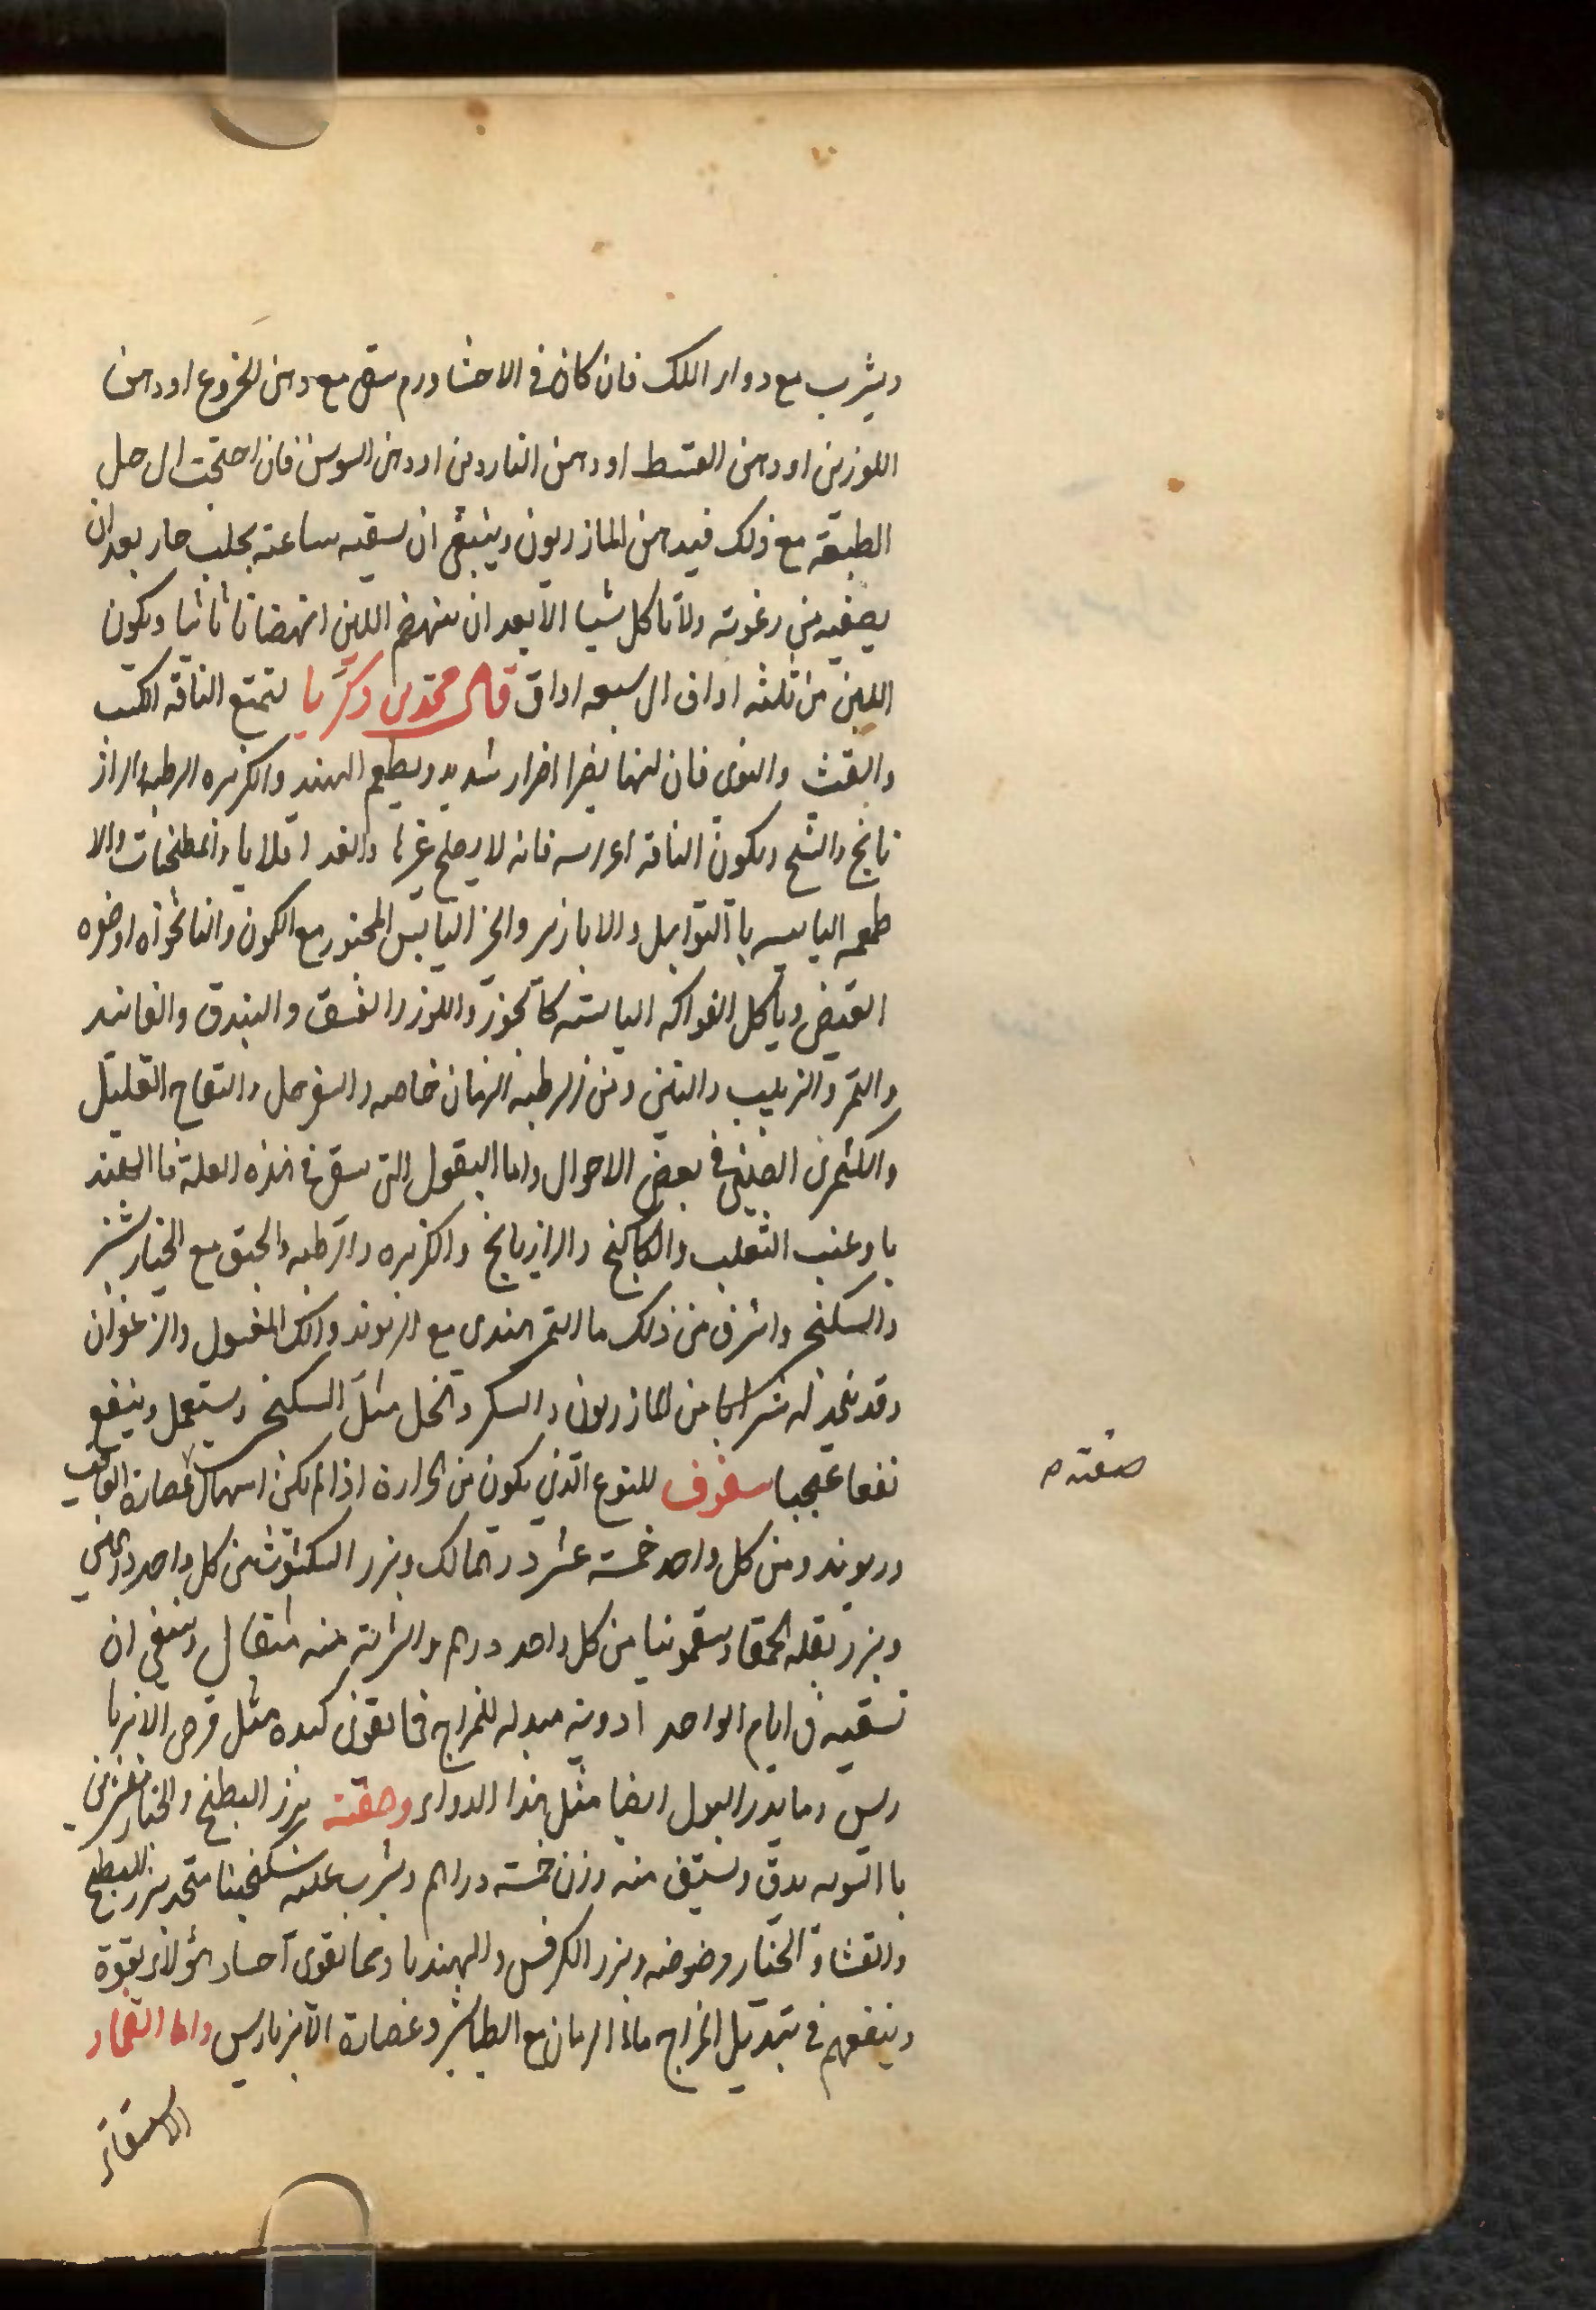 ويشرب مع دواء اللك فان كان فى الاحشا ورم سقى مع دهن الخروع او دهن
اللوزين او دهن القسط او دهن الناردين او دهن السوسن فان احتجت الى حل
الطبيعة مع ذلك فبدهن المازريون وينبغى ان يسقيه ساعته بحلب حار بعد ان
يصفيه من رغوته ولا ياكل شيا الا بعد ان ينهضم اللبن انهضاما ثانيا ويكون
اللبن من ثلثه اواق الى سبعه اواق قال محمد بن زكريا
والقت والنوى فان لبنها يضر اضرار شديد ويطعم الهند والكزبره الرطبه والراز
يانج والشيح ويكون الناقه اعرابيه فانه لا يصلح غيرها والغدا قلايا ومطجنات والا
طعمه اليابسه با التوابل والابازير والخبز اليابس المخبوز مع الكمون والنانخواه
القبض وياكل الفواكه اليابسه كالجوز واللوز والفستق والبندق والفانيد
والتمر والزبيب والتين ومن الرطبه الرمان خاصه والسفرجل والتفاح القليل
والكمثرى الصينى فى بعض الاحوال واما البقول التى يسقى فى هذه العلة فا الهند
با وعنب الثعلب والكاكنج والرازيانج والكزبره والرطبه والحبق مع الخيار شنبر
والسكنج واشرف من ذلك ما التمر الهندى مع الريوند واللك المغسول والزعفران
وقد يتخذ له شرابا من المازريون والسكر والخل مثل السكنج ويستعمل وينفع
نفعا عجيبا سفوف للنوع الذي يكون من الحرارة اذا لم يكن اسهال عصارة الغافت
وريوند ومن كل واحد خمسة عشر درهما لك وبزر الكشوث من كل واحد درهمي
وبزر بقله الحمقا وسقمونيا من كل واحد درهم والشربة منه مثقال وينبغى ان
تسقيه فى ايام الواحد ادوية مبدله للمزاج فما يقوى كبده مثل قرص الانبربا
ريس وما يدر البول ايضا مثل هذا الدواء وصفته بزر البطيخ والخيار
با السويه يدق ويستف منه وزن خمسة دراهم ويشرب عليه سكنجبينا متخد ببزر البطيخ
والقثا والخيار وضوضه وبزر الكرفس والهندبا ومما يقوى اجساد هؤلاء بقوة
وينفعهم فى تبديل المزاج ماء الرمان مع الطباشير وعصارة الانبرباريس واما القمار
الاستقائ
صفته